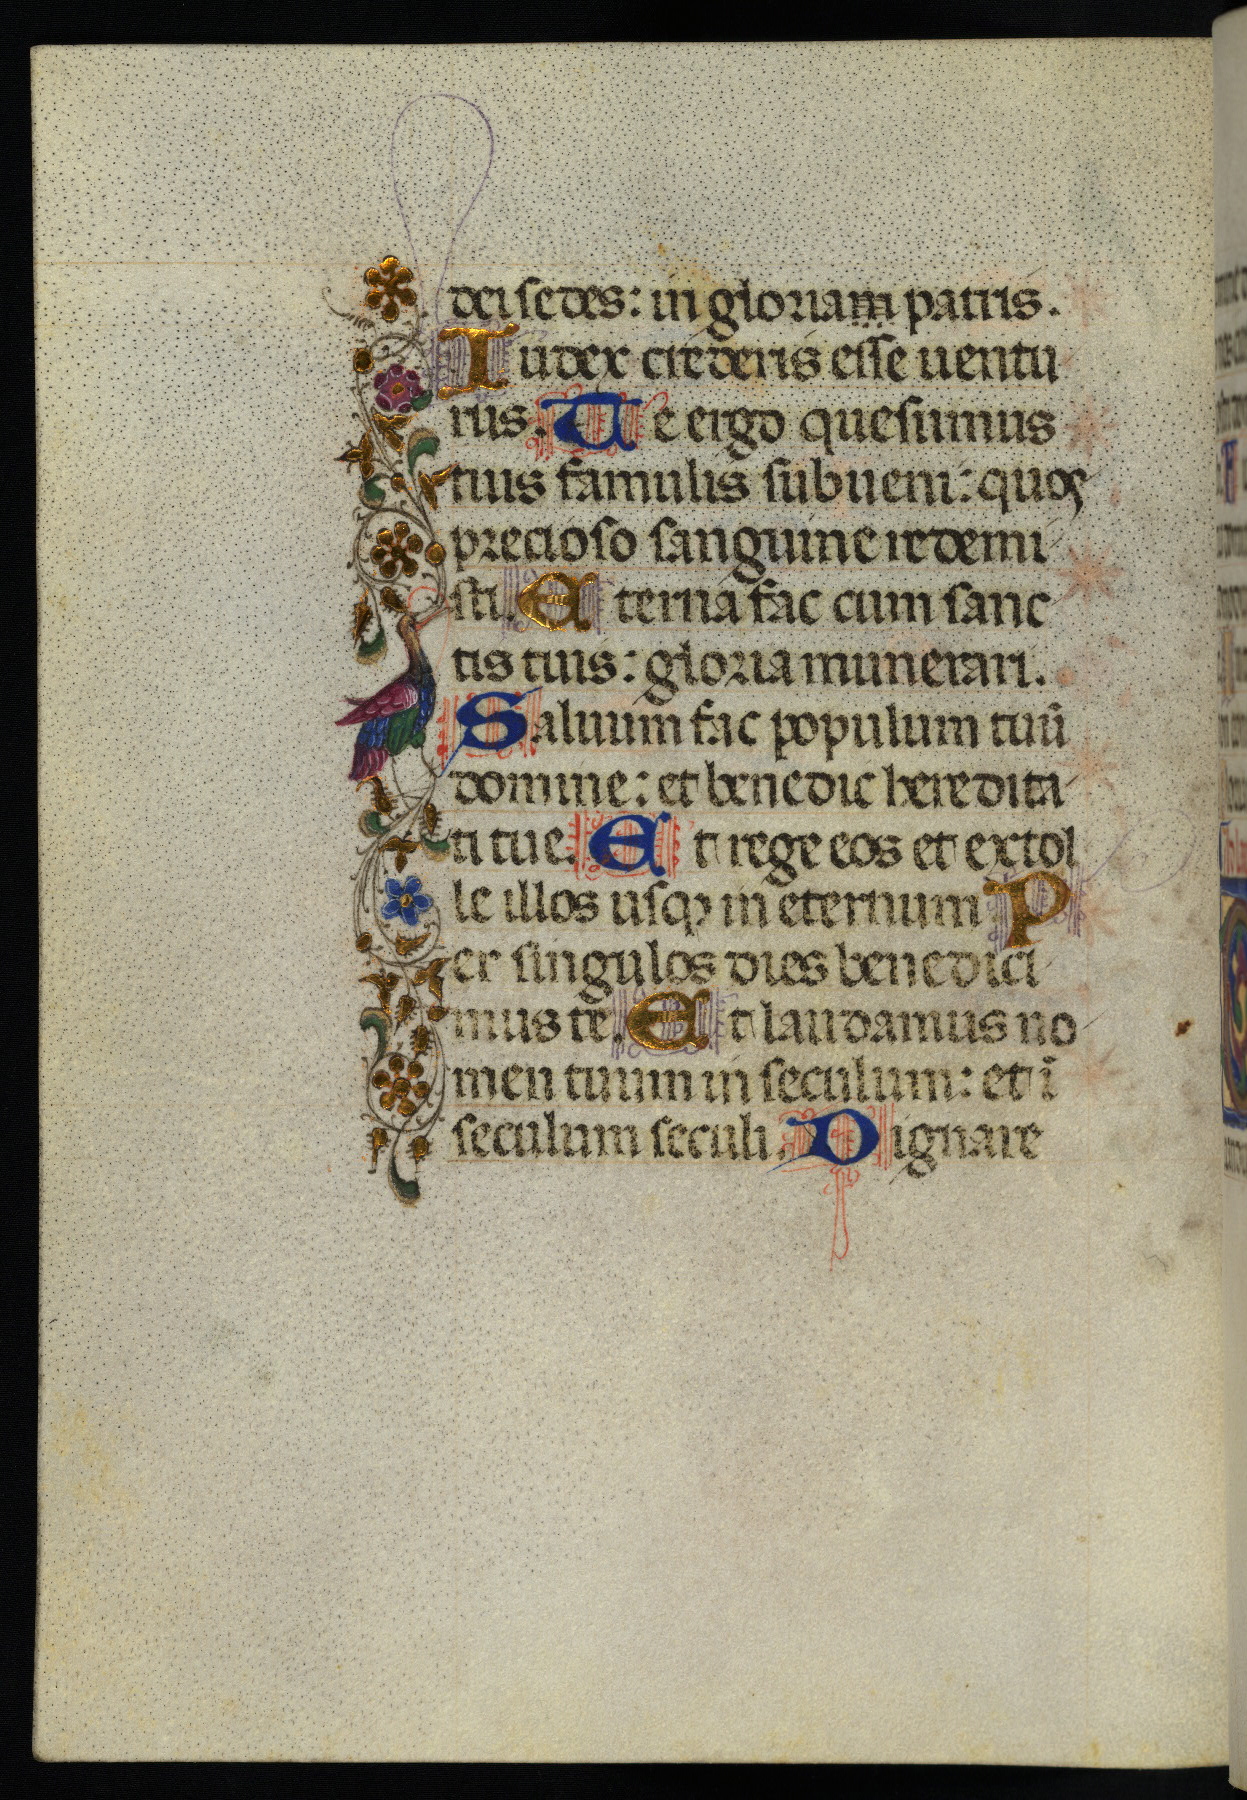 dei sedes: in gloriam patris.
Iudex crederis esse uentu
rus. Te ergo quesumus
tuis famulis subueni: quos
precioso sanguine redemi
sti. Eterna fac cum sanc
tis tuis: gloria munerari.
Saluum fac populum tuū
domine: et benedic heredita
ti tue. Et rege eos et extol
le illos usqꝫ in eternum P
er singulos dies benedici
mus te. Et laudamus no
men tuum in seculum: et ī
seculum seculi. Dignare